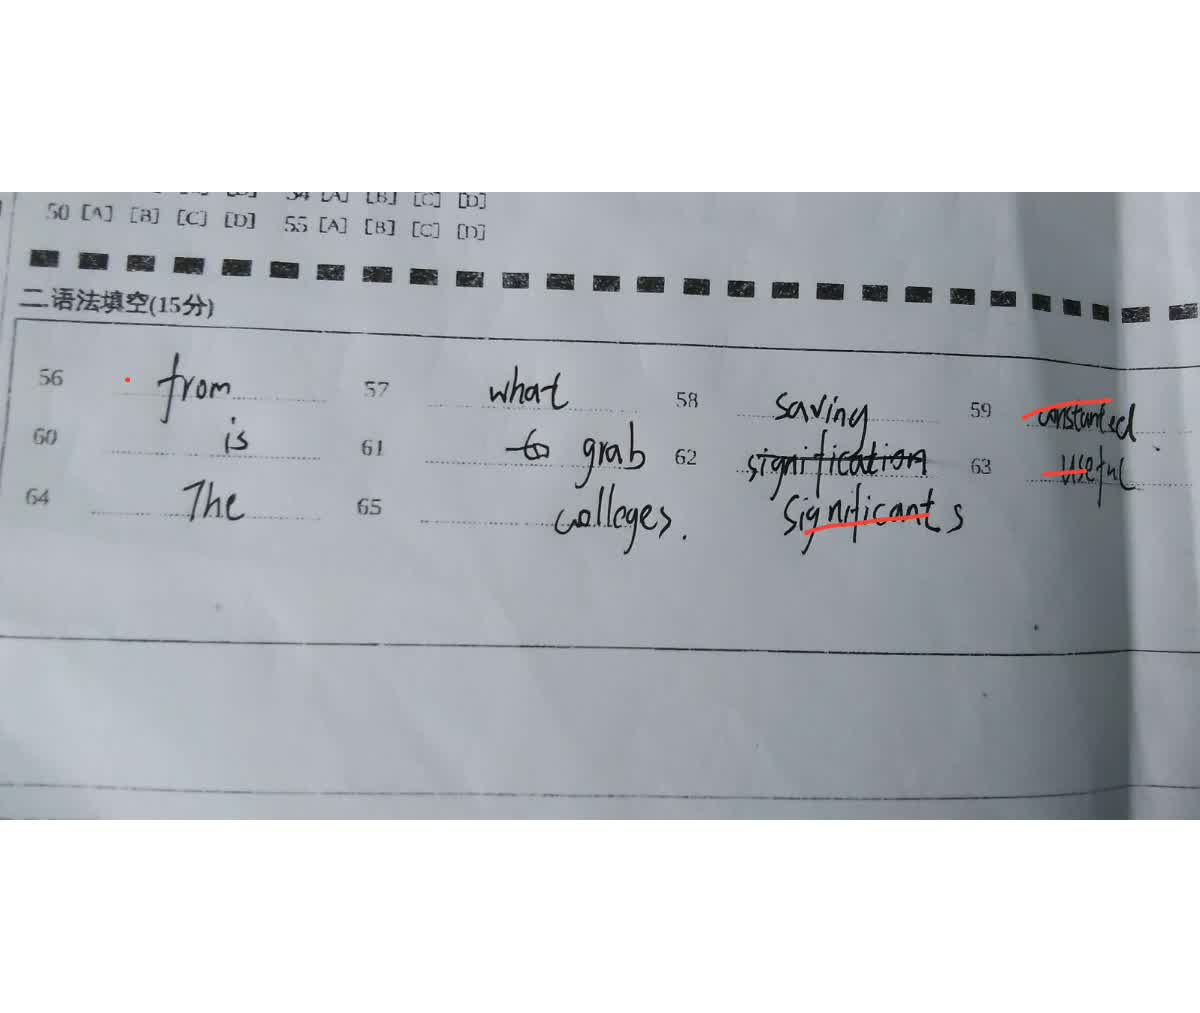 54 [A] [B] [C] [D]
50 [A] [B] [C] [D] 55 [A] [B] [C] [D]
二.语法填空(15分)
56 from 57 what 58 saving 59 constanted
60 is 61 to grab 62 signification 63 useful
64 The 65 colleges. significants